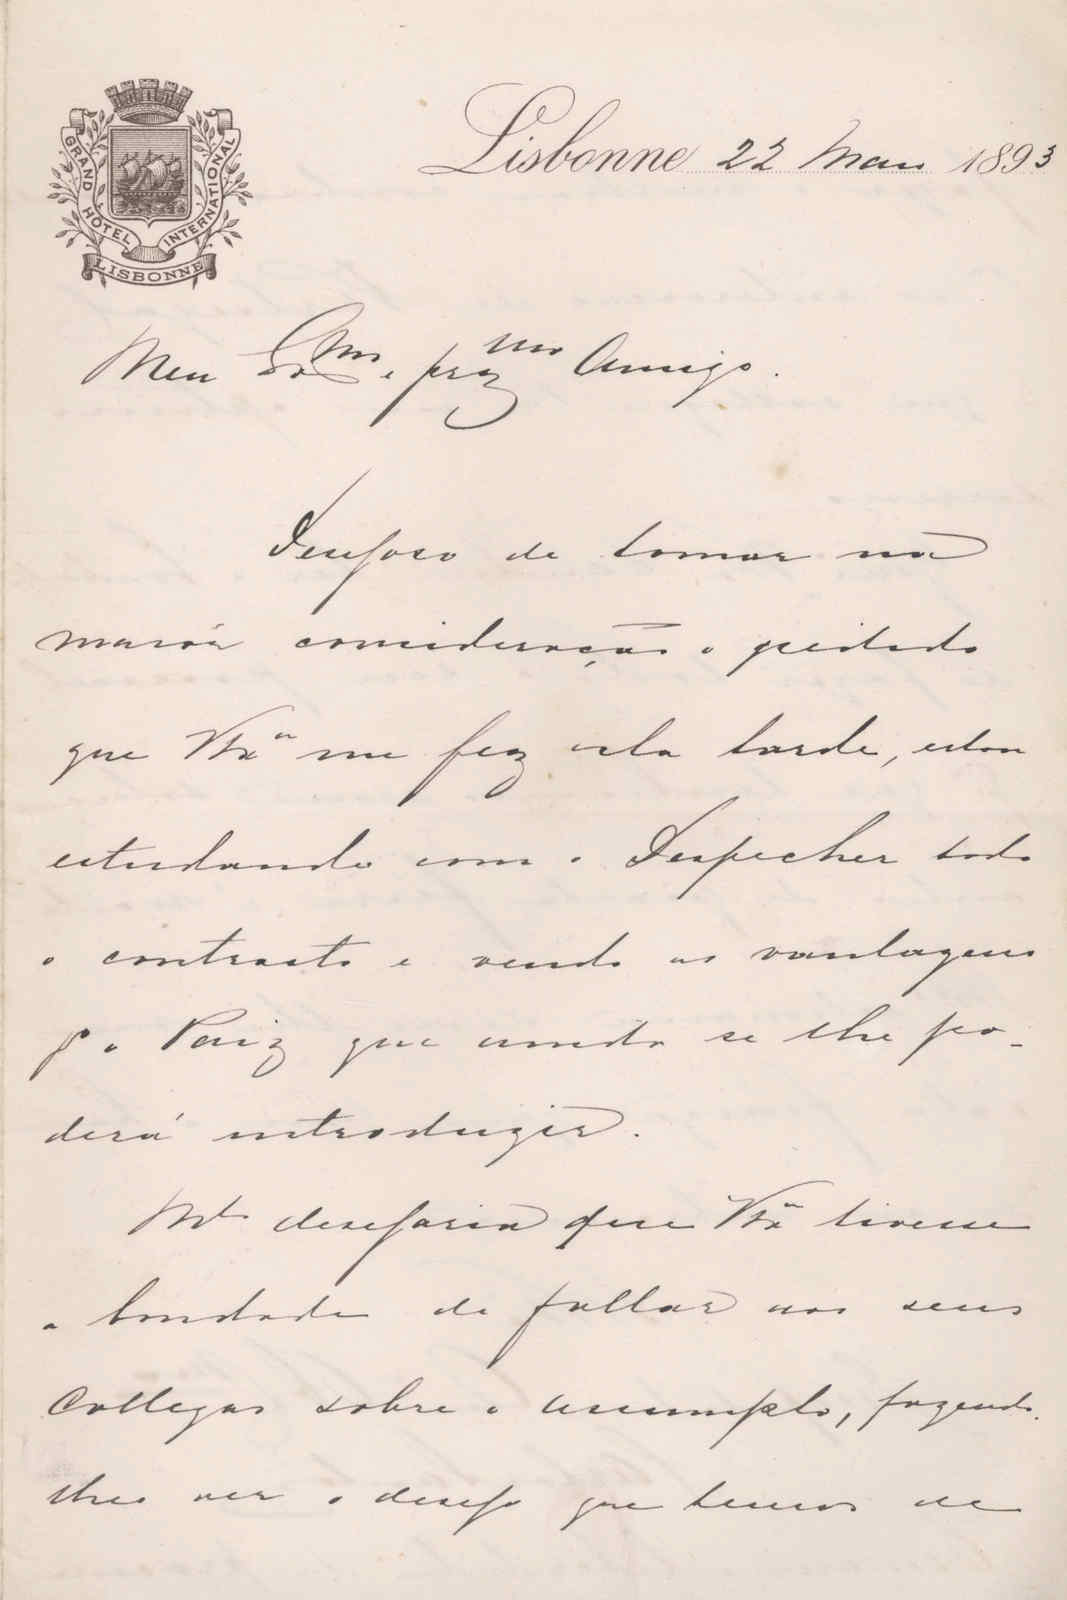 GRAND HÔTEL INTERNATIONAL
LISBONNE
Lisbonne 22 Maio 1893
Meu Exmo e prezmo Amigo.
Desejoso de tomar na
maior consideração o pedido
que VExa me fez esta tarde, estou
estudando com o Despecher todo
o contracto e vendo as vantagens
p a o Paiz que ainda se lhe po-
derá introduzir.
Mto desejaria que VExa tivesse
a bondade de fallar aos seus
Collegas sobre o assumpto, fazendo
lhes ver o desejo que temos de